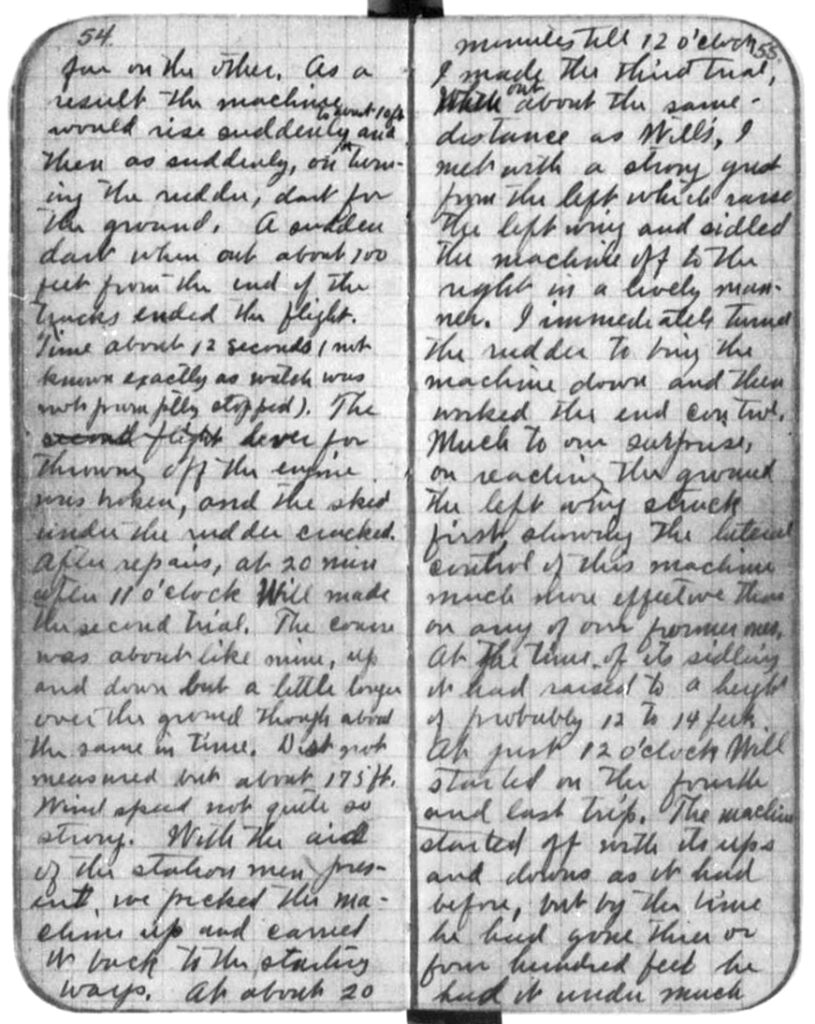 54
far on the other. As a
result the machine
would rise suddenly to about 10 ft. and
then as suddenly, on turn-
ing the rudder, dart for
the ground. A sudden
dart when out about 100
feet from the end of the
tracks ended the flight.
Time about 12 seconds (not
known exactly as watch was
not promptly stopped). The
second flight lever for
throwing off the engine
was broken, and the skid
under the rudder cracked.
After repairs, at 20 min
after 11 o'clock Will made
the second trial. The course
was about like mine, up
and down but a little longer
over the ground though about
the same in time. Dist not
measured but about 175 ft.
Wind speed not quite so
strong. With the aid
of the station men pres-
ent we picked the ma-
chine up and carried
it back to the starting
ways. At about 20
55
minutes till 12 o'clock
I made the third trial,
When out about the same
distance as Will's, I
met with a strong gust
from the left which raised
the left wing and sidled
the machine off to the
right in a lively man-
ner. I immediately turned
the rudder to bring the
machine down and then
worked the end control.
Much to our surprise,
on reaching the ground
the left wing struck
first, showing the lateral
control of this machine
much more effective than
on any of our former ones.
At the time of its sidling
it had raised to a height
of probably 12 to 14 feet.
At just 12 o'clock Will
started on the fourth
and last trip. The machine
started off with its ups
and downs as it had
before, but by the time
he had gone three or
four hundred feet he
had it under much